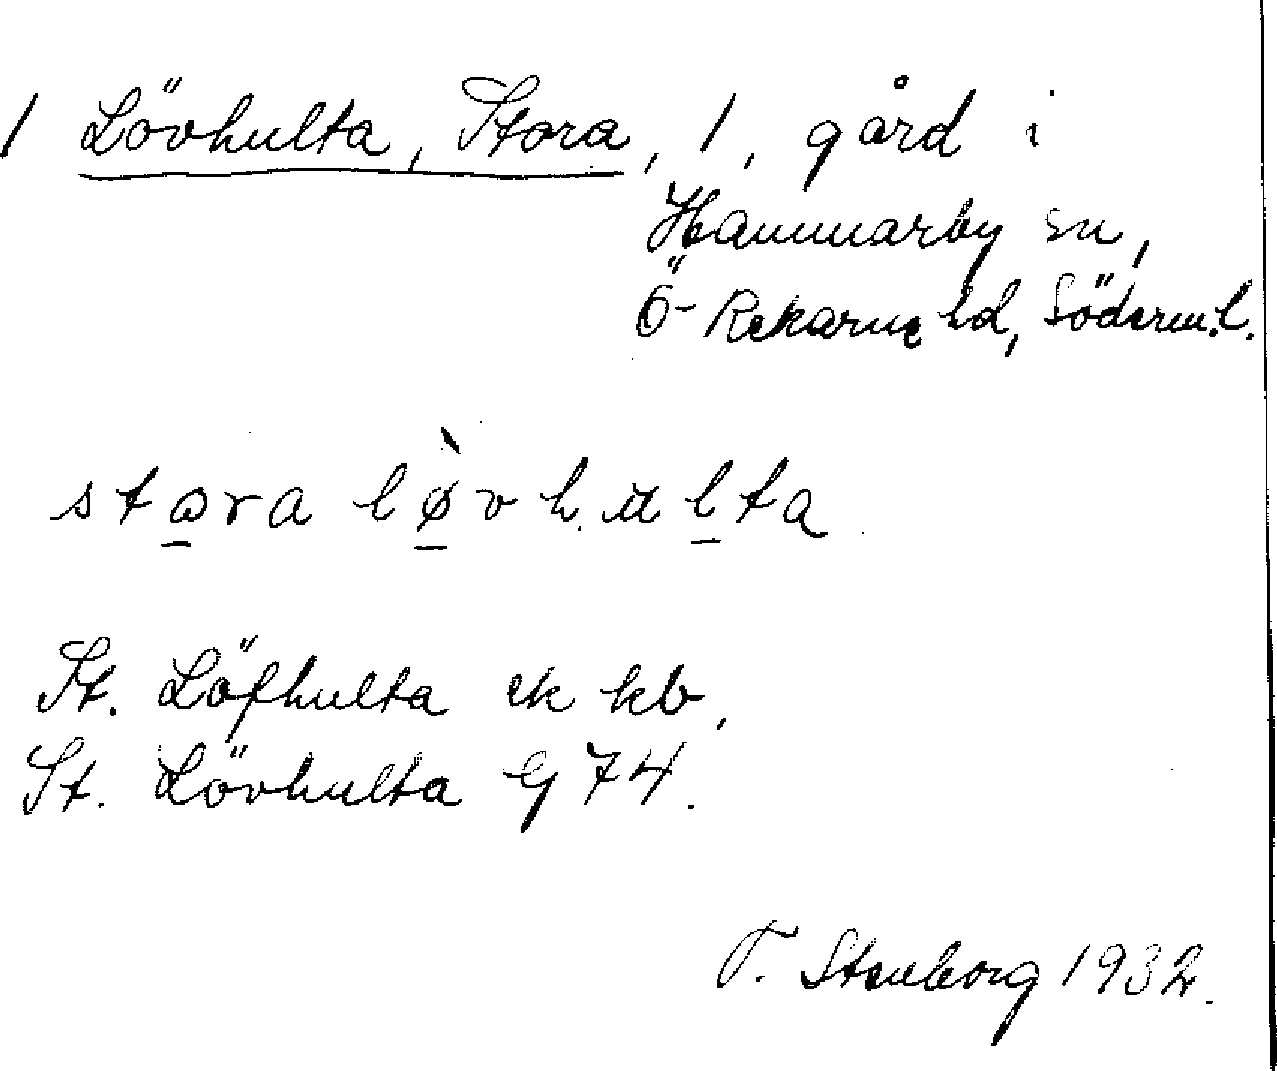 1 Lövhulta, Stora, 1, gård i
Hammarby sn,
Ö-Rekarne hd, Söderm.l.
stora lø̀vhulta
St. Löfhulta ek kb,
St. Lövhulta G 74.
T. Stenborg 1932.